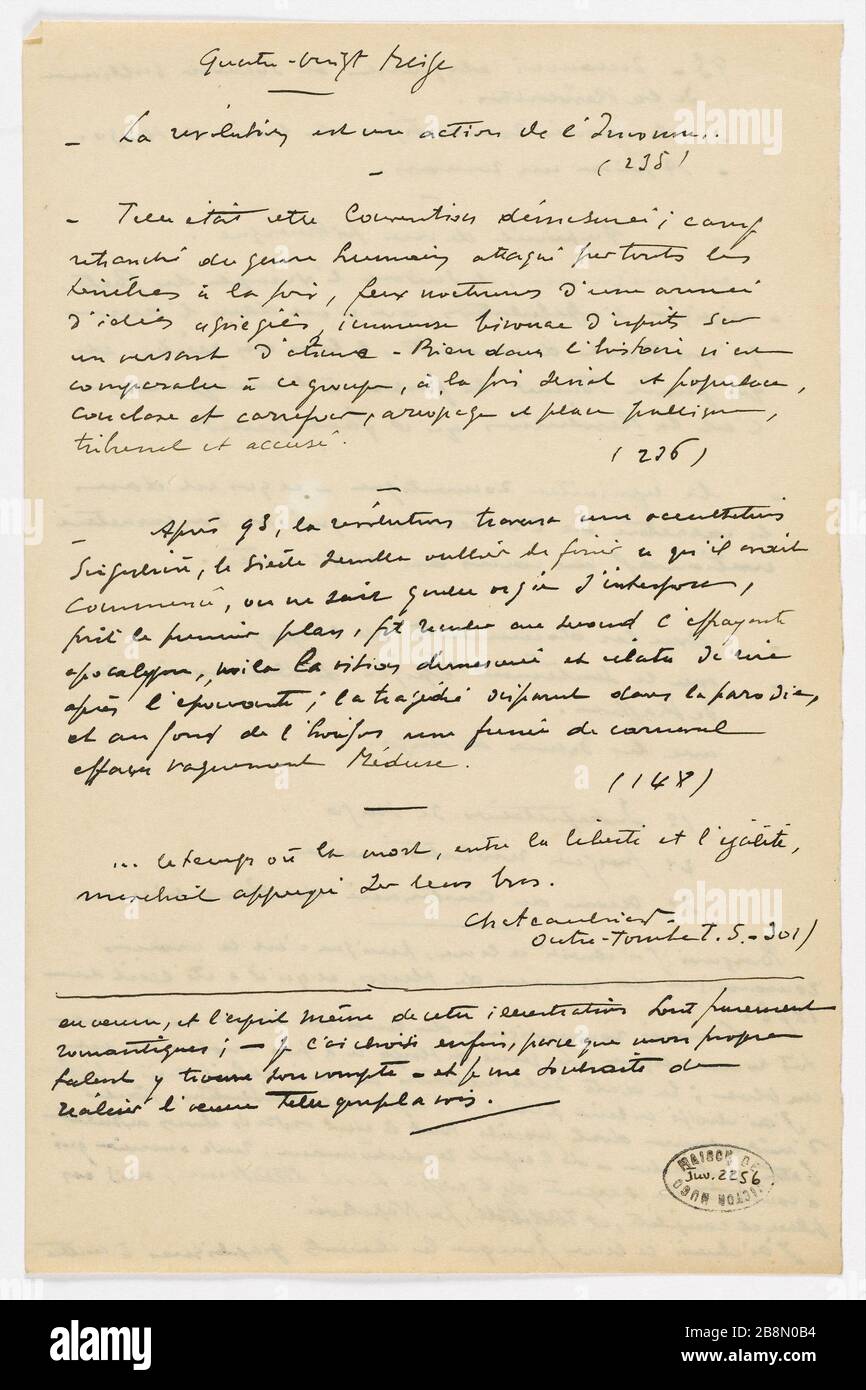 Quatre-vingt treize
- La révolution est une action de l'Inconnu..
(235)
- Telle était cette Convention démesurée ; camp
retranché du genre humain attaqué par toutes les
ténèbres à la fois, feux nocturnes d'une armée
d'idées assiégées, immense bivouac d'esprits sur
un versant d'abîme - Rien dans l'histoire n'est
comparable à ce groupe, à la fois sénat et populace,
conclave et carrefour, aréopage et place publique,
tribunal et accusé.
(236)
- Après 93, la révolution traversa une occultation
singulière, le siècle sembla oublier de finir ce qu'il avait
commencé, on ne sait quelle orgie s'interposa,
prit le premier plan, fit reculer au second l'effrayante
apocalypse, voila la vision démesurée et éclata de rire
après l'épouvante ; la tragédie disparut dans la parodie,
et au fond de l'horizon une fumée de carnaval
effaça vaguement Méduse.
(148)
... le temps où la mort, entre la liberté et l'égalité,
marchait appuyée sur leurs bras.
Chateaubriand
Outre-Tombe T. 5 - 301)
et l'esprit même de cette illustration sont purement
romantiques ; - je l'ai choisi enfin, parce que mon propre
talent y trouve son compte - et je me souhaite de
réaliser l'œuvre telle que je la vois.
MAISON DE VICTOR HUGO
Inv. 2256
alamy
alamy
Image ID: 2B8N0B4
www.alamy.com